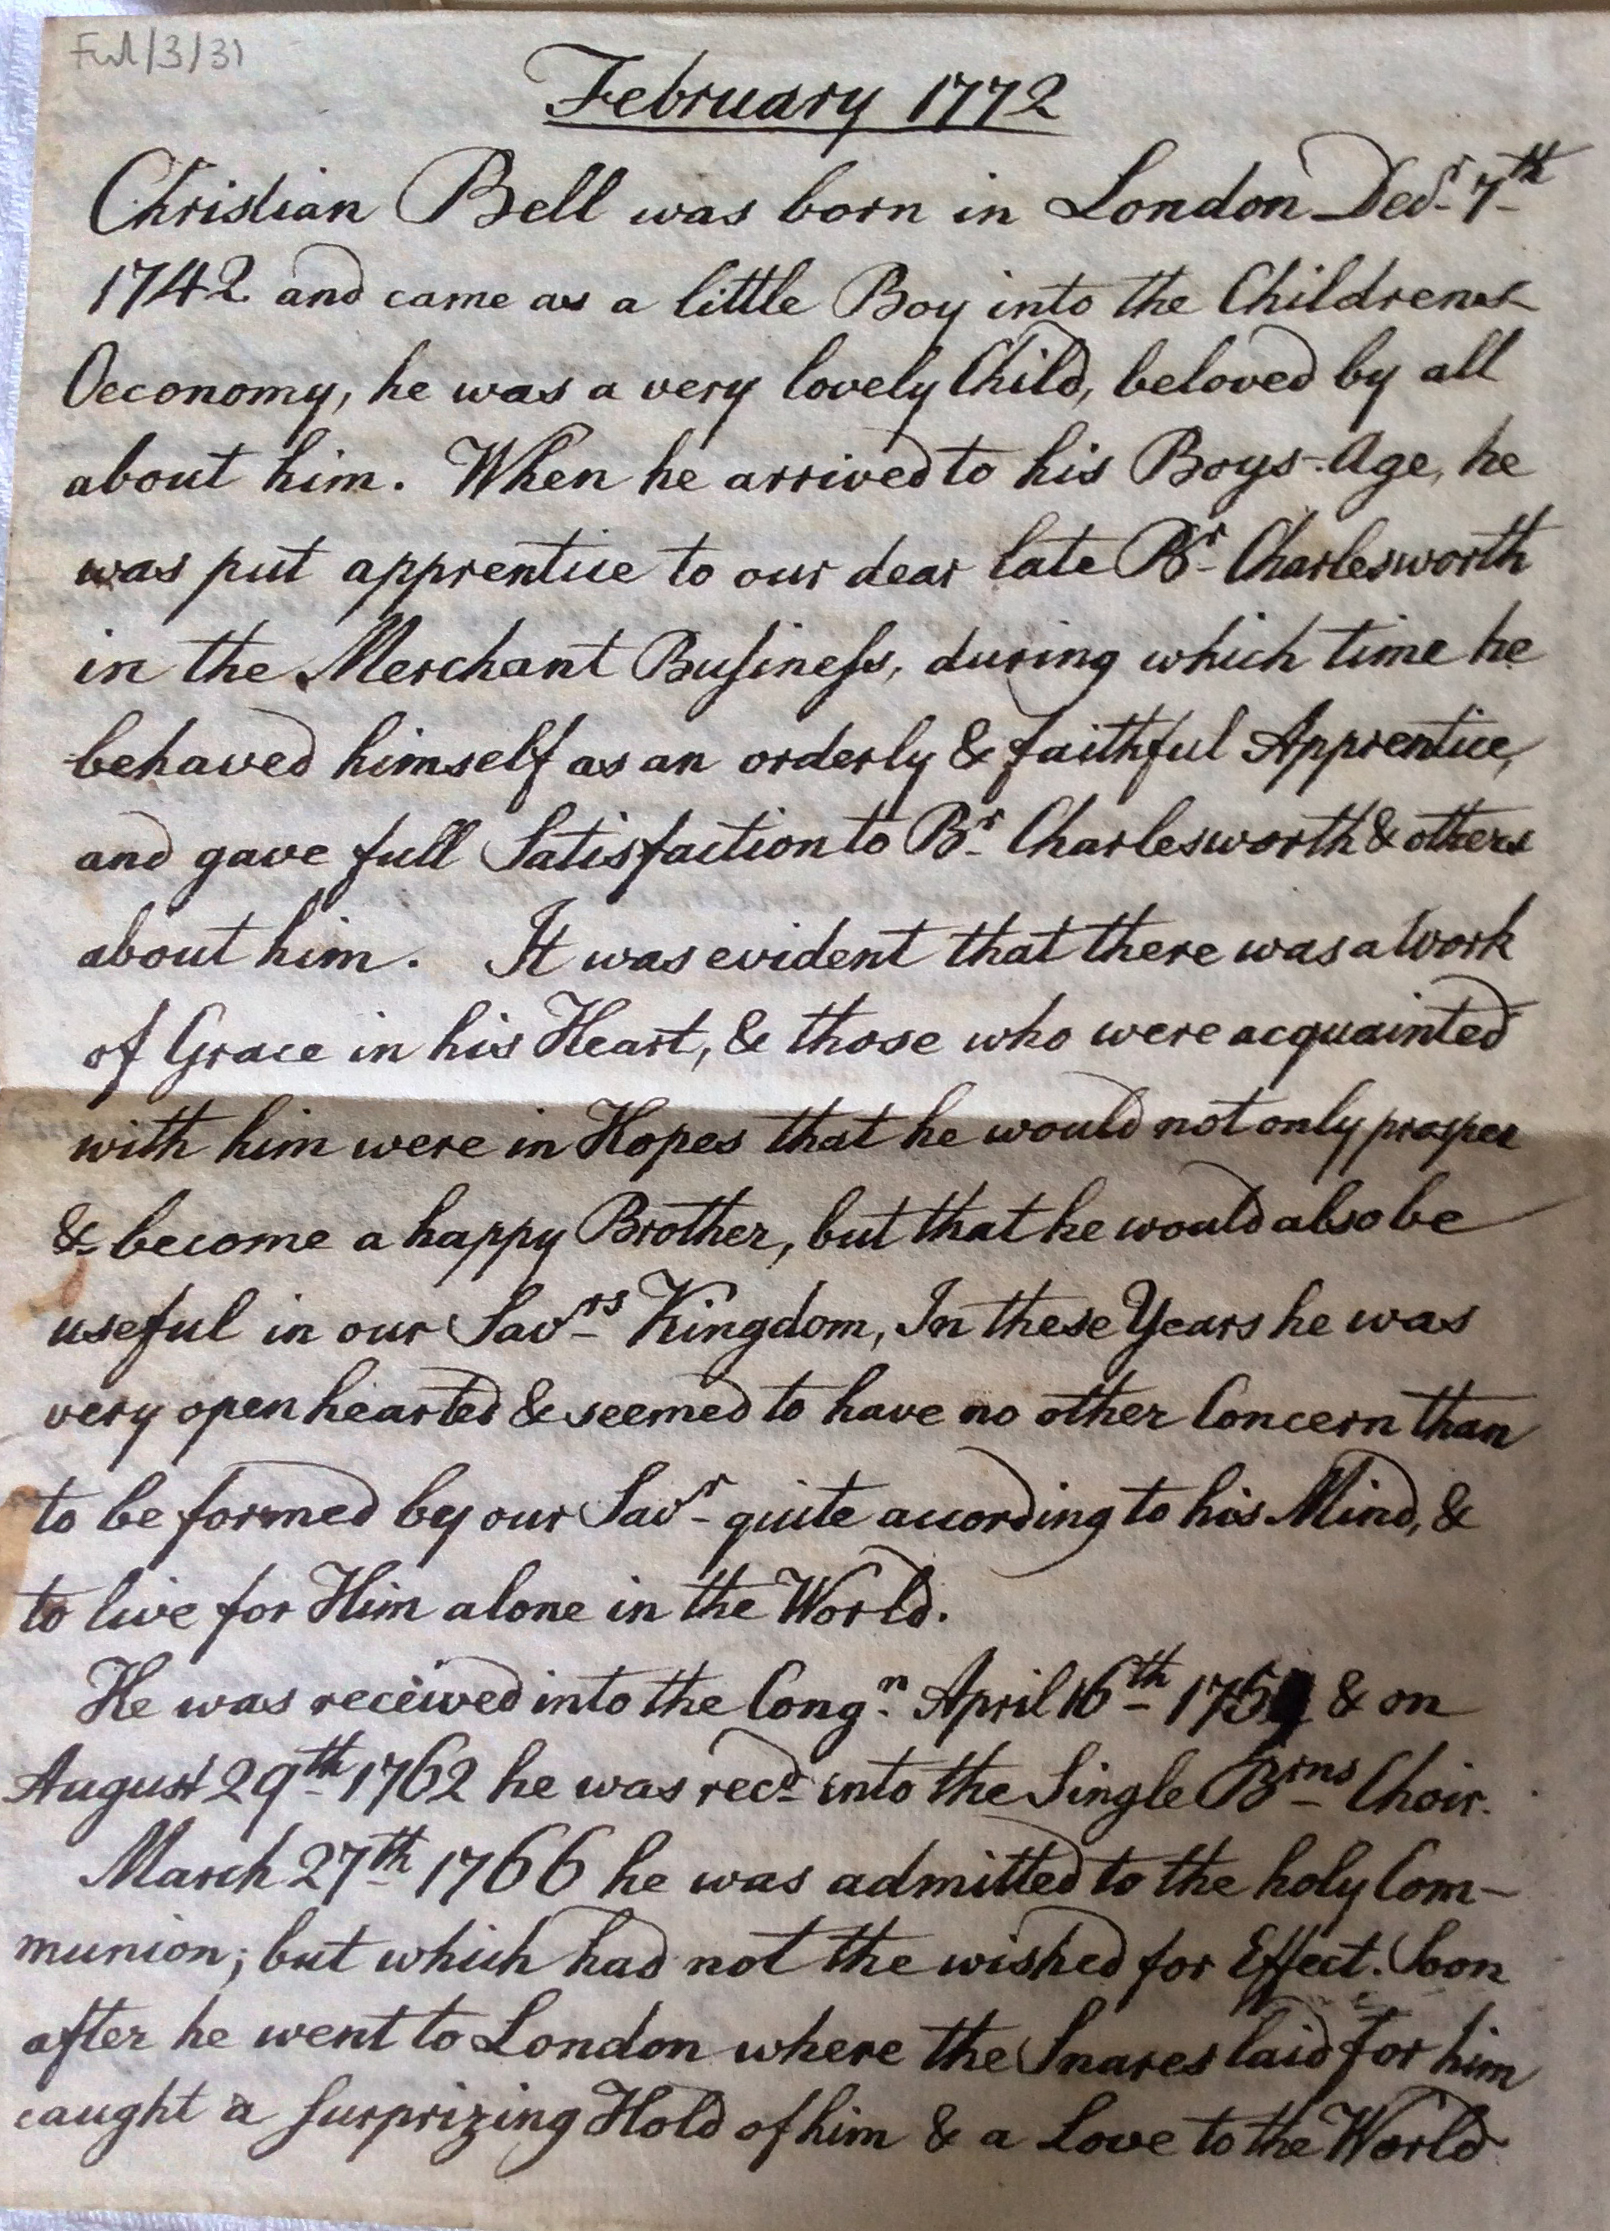 Ful/3/31
February 1772
Christian Bell was born in London Decr 7th
1742 and came as a little Boy into the Childrens
Oeconomy, he was a very lovely Child, beloved by all
about him. When he arrived to his Boys-Age, he
was put apprentice to our dear late Br Charlesworth
in the Merchant Buſineſs, during which time he
behaved himself as an orderly & faithful Apprentice,
and gave full Satisfaction to Br Charlesworth & others
about him. It was evident that there was a Work
of Grace in his Heart, & those who were acquainted
with him were in Hopes that he would not only prosper
& become a happy Brother, but that he would also be
useful in our Savrs Kingdom, In these Years he was
very open hearted & seemed to have no other Concern than
to be formed by our Savr quite according to his Mind, &
to live for Him alone in the World.
He was received into the Congn April 16th & on
August 29th 1762 he was recd into the Single Brns Choir.
March 27th 1766 he was admitted to the holy Com-
munion; but which had not the wished for Effect. Soon
after he went to London where the Snares laid for him
caught a surprizing Hold of him & a Love to the World